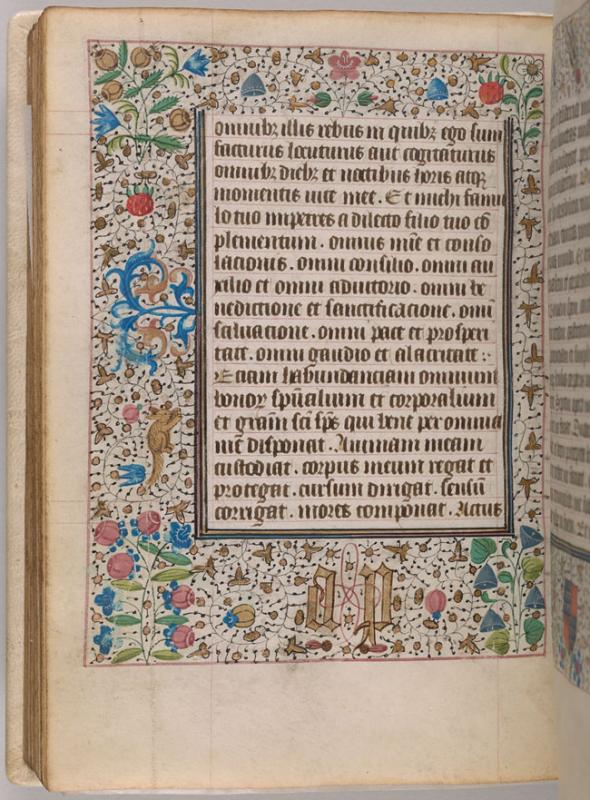 omnibꝫ illis rebus in quibꝫ ego sum
facturus locuturus aut cogitaturus
omnibꝫ diebꝫ et noctibus horis atqꝫ
momentis vite mee. Et michi famu
lo tuo impetres a dilecto filio tuo cō
plementum. omnis mīe et conso
lacionis. omni consilio. omni au
xilio et omni adiutorio. omni be
nedictione et sanctificacione. omī
saluacione. omni pace et prosperi
tate. omni gaudio et alacritate :·
Etiam habundanciam omnium
bonoꝝ spūalium et corporalium
et grām sc̄i sp̄s qui bene per omnia
me disponat. Animam meam
custodiat. corpus meum regat et
protegat. cursum dirigat. sensū
corrigat. mores componat. Actus
d p